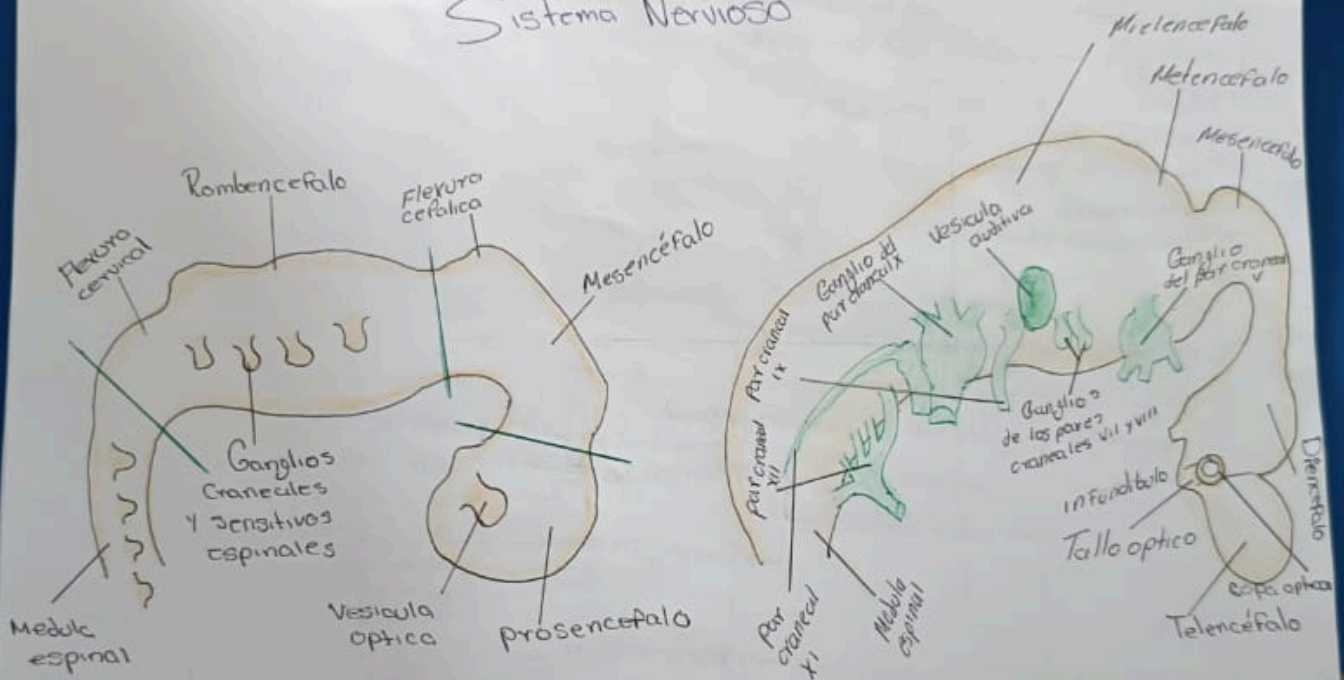 Sistema Nervioso
Rombencefalo
Flexura
cefalica
Flexura
cervical
Mesencéfalo
Ganglios
Craneales
y sensitivos
espinales
Medula
espinal
Vesicula
optica
prosencefalo
Mielencefalo
Metencefalo
Mesencefalo
Vesicula
auditiva
Ganglio del
par craneal X
Ganglio
del par craneal
V
Par craneal
IX
Par craneal
XII
Ganglios
de los pares
craneales VII y VIII
infundibulo
Tallo optico
Diencefalo
copa optica
Telencéfalo
Par
craneal
XI
Medula
espinal